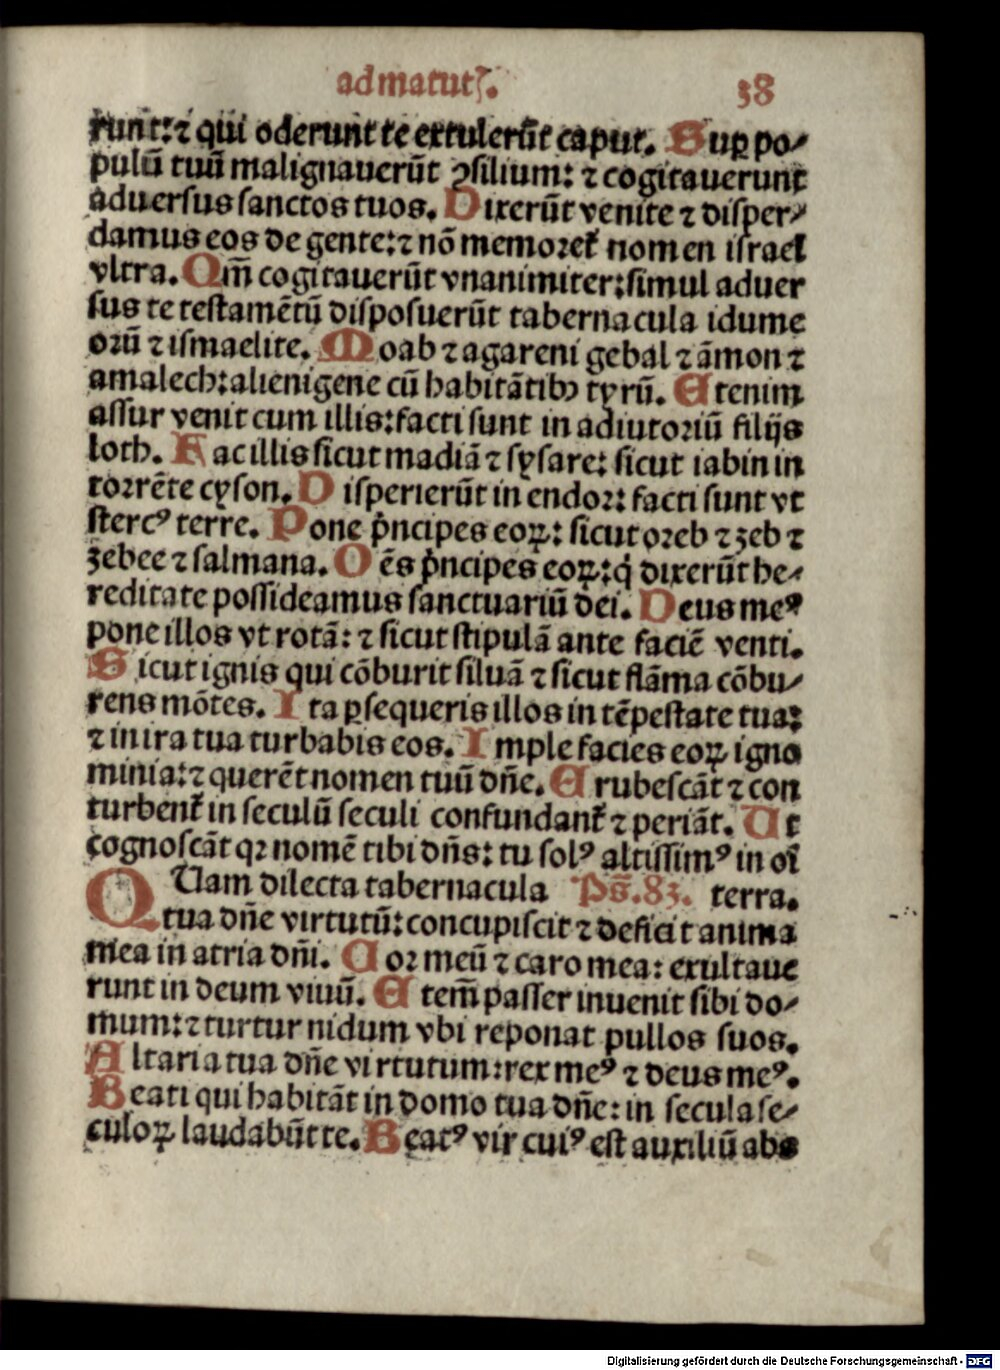 ad matutꝭ. 38
runt: ⁊ qui oderunt te extulerūt caput. Suꝑ po⸗
pulū tuū malignauerūt ꝯsilium: ⁊ cogitauerunt
aduersus sanctos tuos. Dixerūt venite ⁊ disper⸗
damus eos de gente: ⁊ nō memoret᷑ nomen israel
vltra. Qm̄ cogitauerūt vnanimiter: simul aduer
sus te testamētū disposuerūt tabernacula idume
oꝛū ⁊ ismaelite. Moab ⁊ agareni gebal ⁊ āmon ⁊
amalech: alienigene cū habitātibꝰ tyrū. Etenim
assur venit cum illis: facti sunt in adiutoꝛiū filijs
loth. Fac illis sicut madiā ⁊ sysare: sicut iabin in
toꝛrēte cyson. Disperierūt in endoꝛ: facti sunt vt
stercꝰ terre. Pone pͥncipes eoꝝ: sicut oꝛeb ⁊ zeb ⁊
zebee ⁊ salmana. Oēs pͥncipes eoꝝ: qͥ dixerūt he⸗
reditate possideamus sanctuariū dei. Deus meꝰ
pone illos vt rotā: ⁊ sicut stipulā ante faciē venti.
Sicut ignis qui cōburit siluā ⁊ sicut flāma cōbu⸗
rens mōtes. Ita ꝑsequeris illos in tēpestate tua:
⁊ in ira tua turbabis eos. Imple facies eoꝝ igno
minia: ⁊ querēt nomen tuū dn̄e. Erubescāt ⁊ con
turbent᷑ in seculū seculi confundant᷑ ⁊ periāt. Ut
cognoscāt qꝛ nomē tibi dn̄s: tu solꝰ altissimꝰ in oī
QUam dilecta tabernacula Ps̄. 83. terra.
tua dn̄e virtutū: concupiscit ⁊ deficit anima
mea in atria dn̄i. Coꝛ meū ⁊ caro mea: exultaue
runt in deum viuū. Etem̄ passer inuenit sibi do⸗
mum: ⁊ turtur nidum vbi reponat pullos suos.
Altaria tua dn̄e virtutum: rex meꝰ ⁊ deus meꝰ.
Beati qui habitāt in domo tua dn̄e: in secula se⸗
culoꝝ laudabūt te. Beatꝰ vir cuiꝰ est auxiliū abs
Digitalisierung gefördert durch die Deutsche Forschungsgemeinschaft - DFG